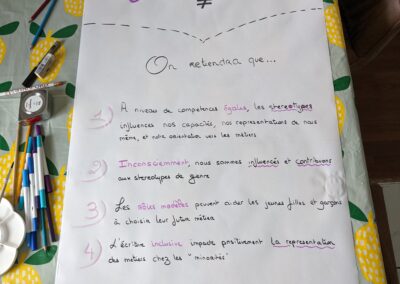 ≠
On retiendra que...
1) A niveau de compétences égales, les stéréotypes
influences nos capacités, nos représentations de nous
même, et notre orientation vers les métiers
2) Inconsciemment, nous sommes influencés et contribuons
aux stéréotypes de genre
3) Les rôles modèles peuvent aider les jeunes filles et garçons
à choisir leur futur métier
4) L'écriture inclusive impacte positivement la représentation
des métiers chez les "minorités"